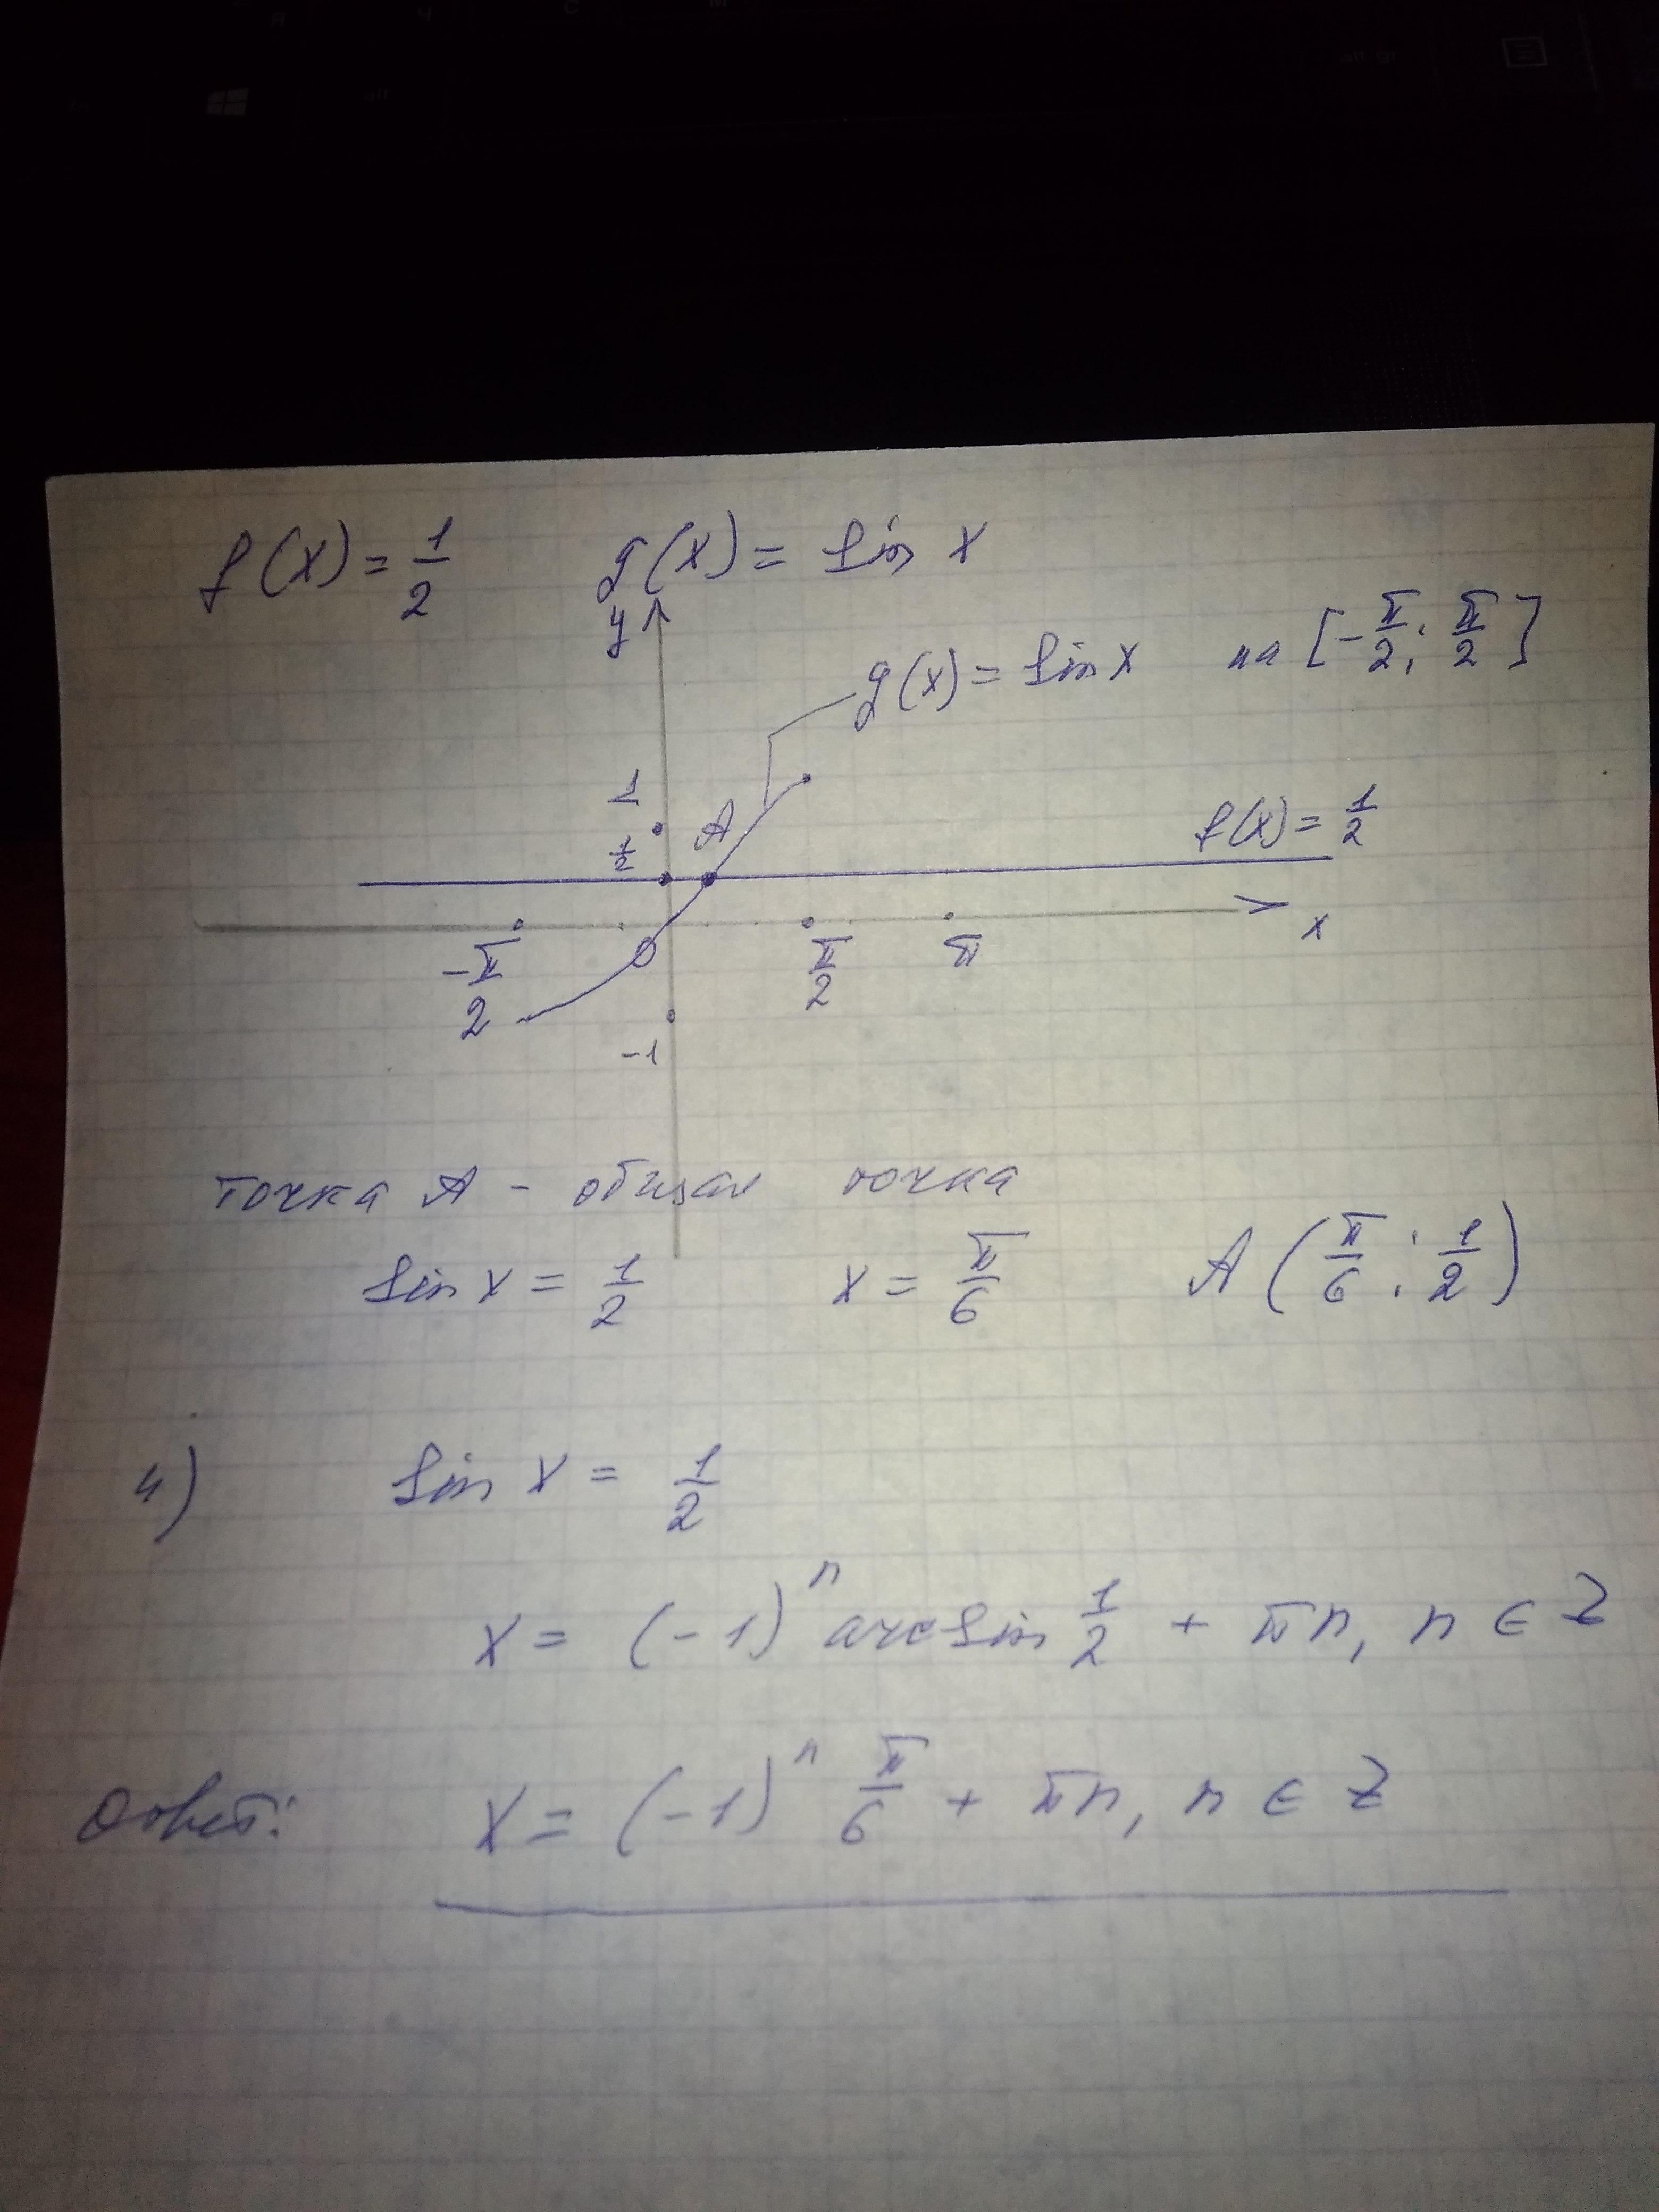 f(x) = 1/2 g(x) = sin x
y
g(x) = sin x на [-π/2; π/2]
1
A
1/2
f(x) = 1/2
x
-π/2 0 π/2 π
-1
точка A - общая точка
sin x = 1/2 x = π/6 A (π/6; 1/2)
4) sin x = 1/2
x = (-1)ⁿ arcsin 1/2 + πn, n ∈ Z
Ответ: x = (-1)ⁿ π/6 + πn, n ∈ Z